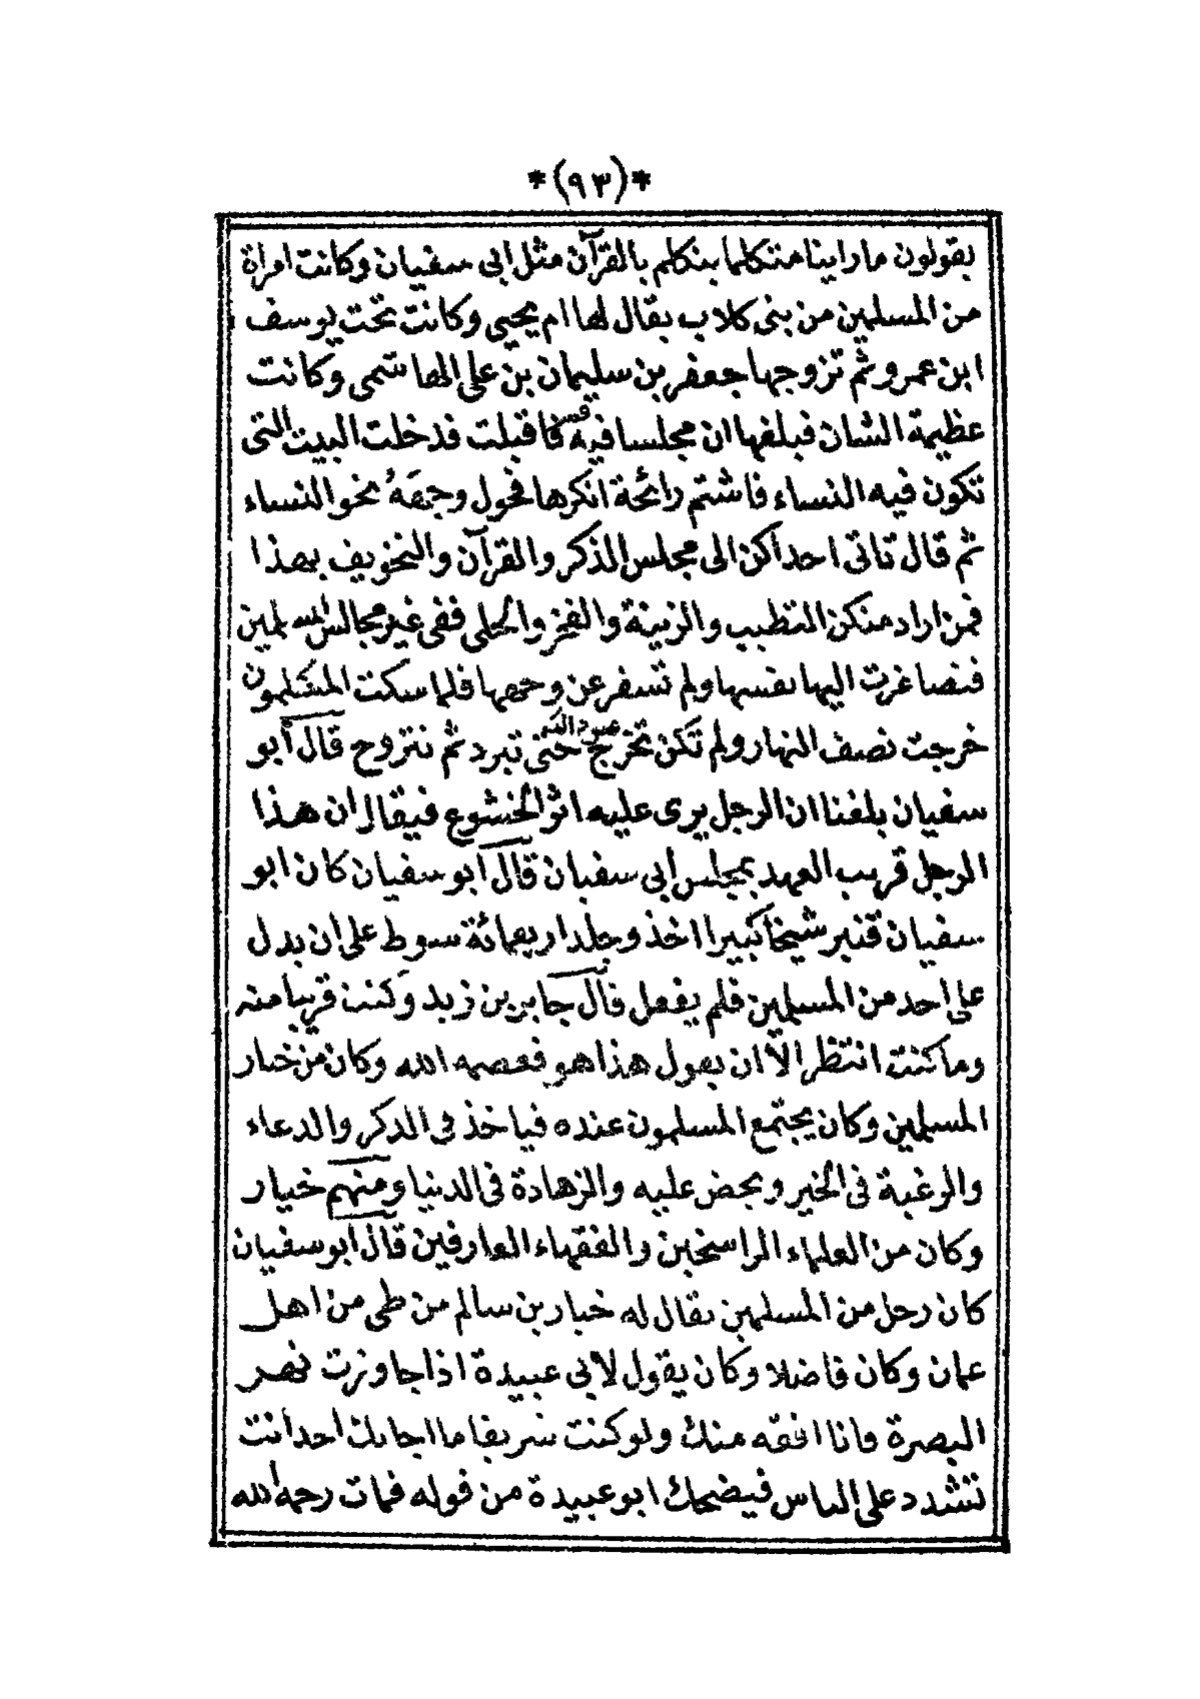 *(٩٣)*
يقولون ماراينا متكلما يتكلم بالقرآن مثل ابى سفيان وكانت امراة
من المسلمين من بنى كلاب يقال لها ام يحيى وكانت تحت يوسف
ابن عمرو ثم تزوجها جعفر بن سليمان بن على الهاشمى وكانت
عظيمة الشان فبلغها ان مجلسا فيه فاقبلت فدخلت البيت التى
تكون فيه النساء فاشتم رائحة انكرها فحول وجهَهُ نحو النساء
ثم قال تاتى احداكن الى مجلس الذكر والقرآن والتخويف بهذا
فمن اراد منكن التطيب والزينة والفخر والحلى ففى غير مجالس المسلمين
فتصاغرت اليها نفسها ولم تسفر عن وجهها فلما سكت المتكلمون
خرجت نصف النهار ولم تكن تخرج حتى تبرد ثم تتروح قال أبو
سفيان بلغنا ان الرجل يرى عليه اثر الخشوع فيقال ان هذا
الرجل قريب العهد بمجلس أبى سفيان قال أبو سفيان كان ابو
سفيان قنبر شيخاً كبيرا اخذ وجلد اربعمائة سوط على ان يدل
على احد من المسلمين فلم يفعل قال جابر بن زيد وكنت قريبا منه
وما كنت انتظر الا ان يقول هذا هو فعصمه الله وكان من خيار
المسلمين وكان يجتمع المسلمون عنده فياخذ فى الذكر والدعاء
والرغبة فى الخير ويحض عليه والزهادة فى الدنيا ومنهم خيار
وكان من العلماء الراسخين والفقهاء العارفين قال ابو سفيان
كان رجل من المسلمين يقال له خيار بن سالم من طى من اهل
عمان وكان فاضلا وكان يقول لابى عبيدة اذا جاوزت نهر
البصرة فانا افقه منك ولو كنت شريفا ما اجابك احد انت
تشدد على الناس فيضحك ابو عبيدة من قوله فمات رحمه الله